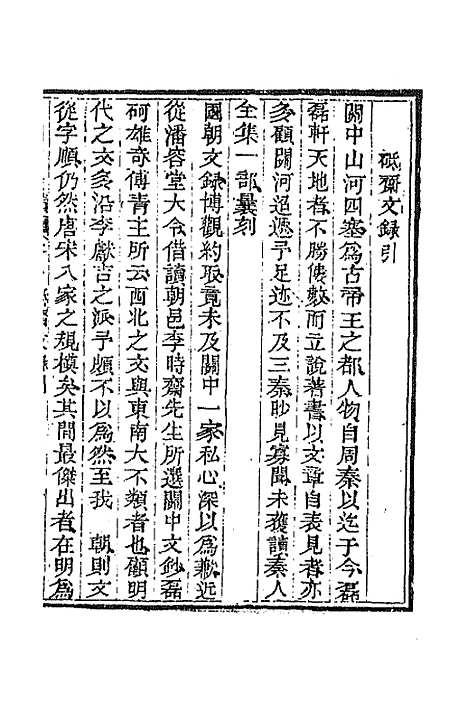 砥齋文錄引
關中山河四塞爲古帝王之都人物自周秦以迄于今磊
磊軒天地者不勝僂數而立說著書以文章自表見者亦
多顧關河迢遞予足迹不及三秦眇見寡聞未獲讀秦人
全集一部曩刻
國朝文錄博觀約取竟未及關中一家私心深以爲歉近
從潘容堂大令借讀朝邑李時齋先生所選關中文鈔磊
砢雄奇傅青主所云西北之文與東南大不類者也顧明
代之文多沿李獻吉之派予頗不以爲然至我 朝則文
從字順仍然唐宋八家之規模矣其間最傑出者在明爲